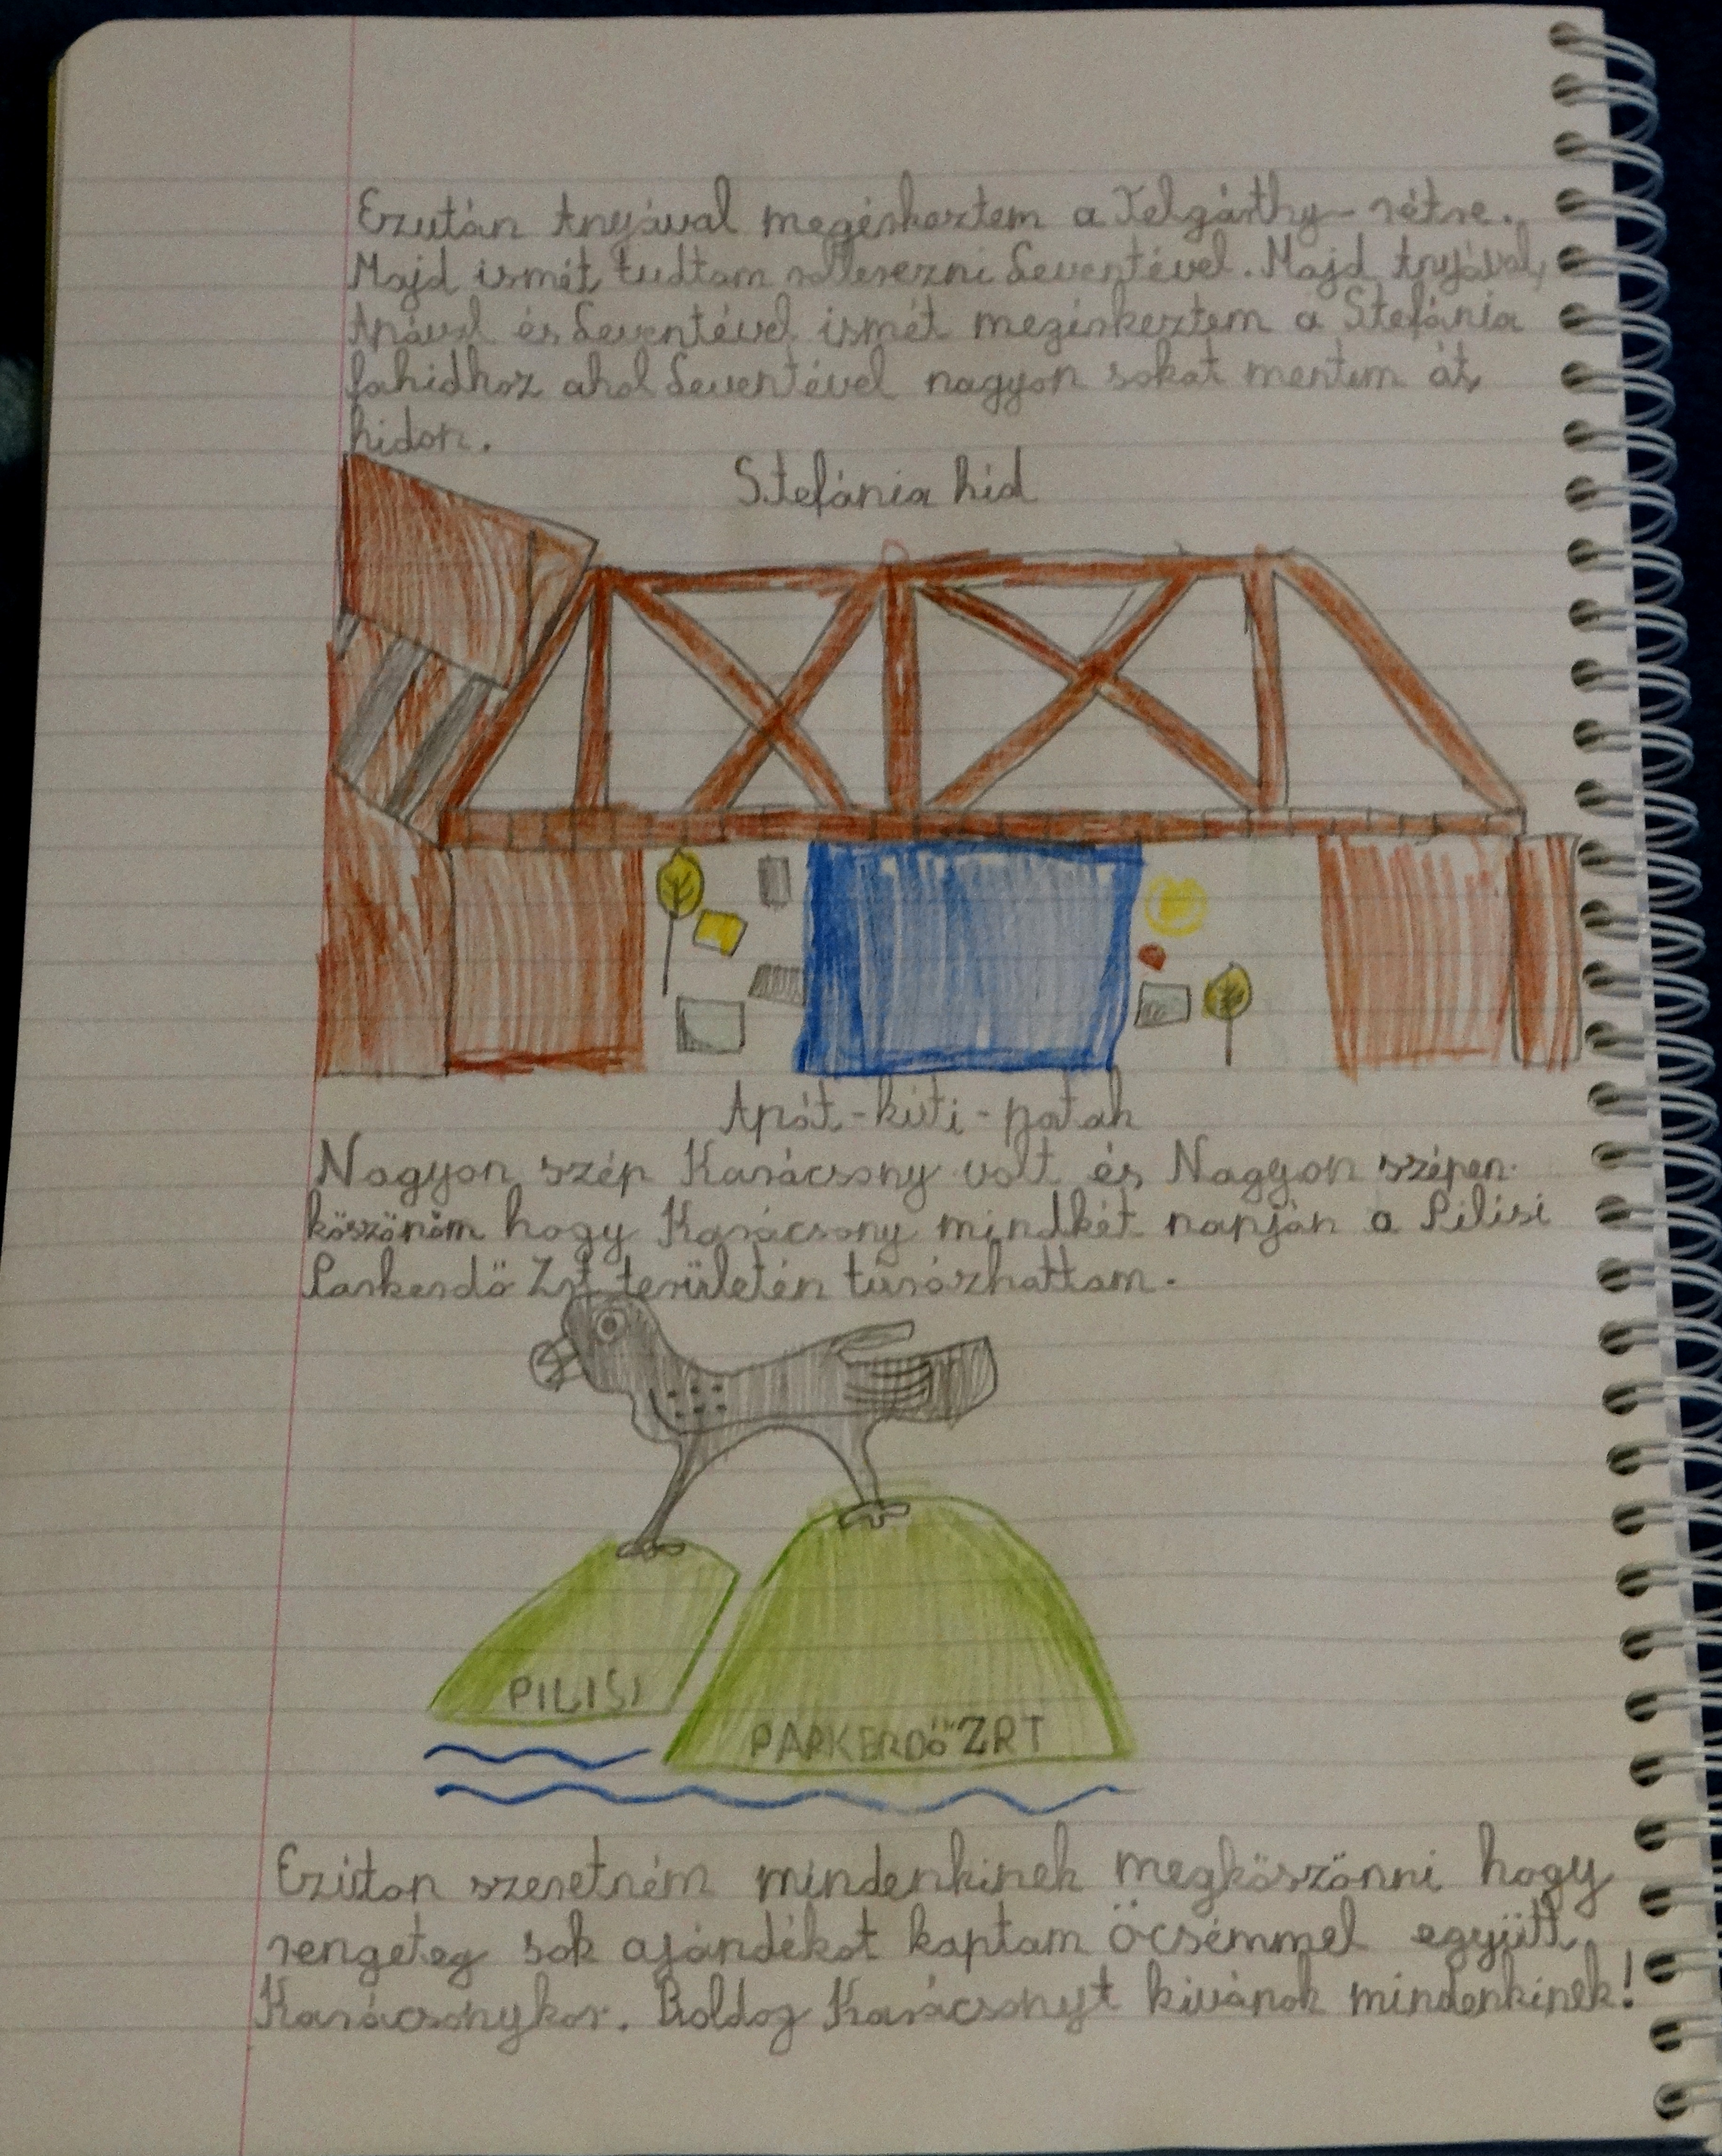 Ezután Anyával megérkeztem a Telgárthy-rétre.
Majd ismét tudtam rollerezni Leventével. Majd Anyával,
Apával és Leventével ismét megérkeztem a Stefánia
fahidhoz ahol Leventével nagyon sokat mentem át
hidon.
Stefánia hid
Apát-kúti-patak
Nagyon szép Karácsony volt és Nagyon szépen
köszönöm hogy Karácsony mindkét napján a Pilisi
Parkerdő Zrt területén túrázhattam.
PILISI
PARKERDŐ ZRT
Ezúton szeretném mindenkinek megköszönni hogy
rengeteg sok ajándékot kaptam öcsémmel együtt
Karácsonykor. Boldog Karácsonyt kivánok mindenkinek!